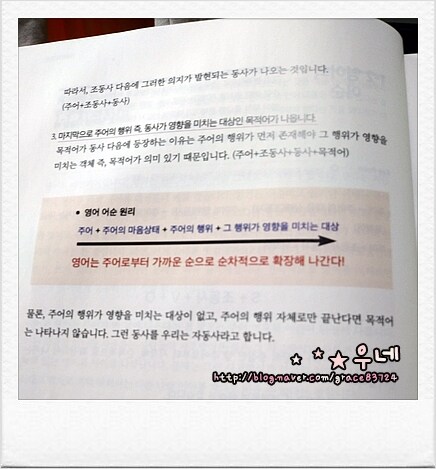 따라서, 조동사 다음에 그러한 의지가 발현되는 동사가 나오는 것입니다.
(주어+조동사+동사)
3. 마지막으로 주어의 행위 즉, 동사가 영향을 미치는 대상인 목적어가 나옵니다.
목적어가 동사 다음에 등장하는 이유는 주어의 행위가 먼저 존재해야 그 행위가 영향을
미치는 객체 즉, 목적어가 의미 있기 때문입니다. (주어+조동사+동사+목적어)
• 영어 어순 원리
주어 + 주어의 마음상태 + 주어의 행위 + 그 행위가 영향을 미치는 대상
영어는 주어로부터 가까운 순으로 순차적으로 확장해 나간다!
물론, 주어의 행위가 영향을 미치는 대상이 없고, 주어의 행위 자체로만 끝난다면 목적어
는 나타나지 않습니다. 그런 동사를 우리는 자동사라고 합니다.
우네
http://blog.naver.com/grace83724